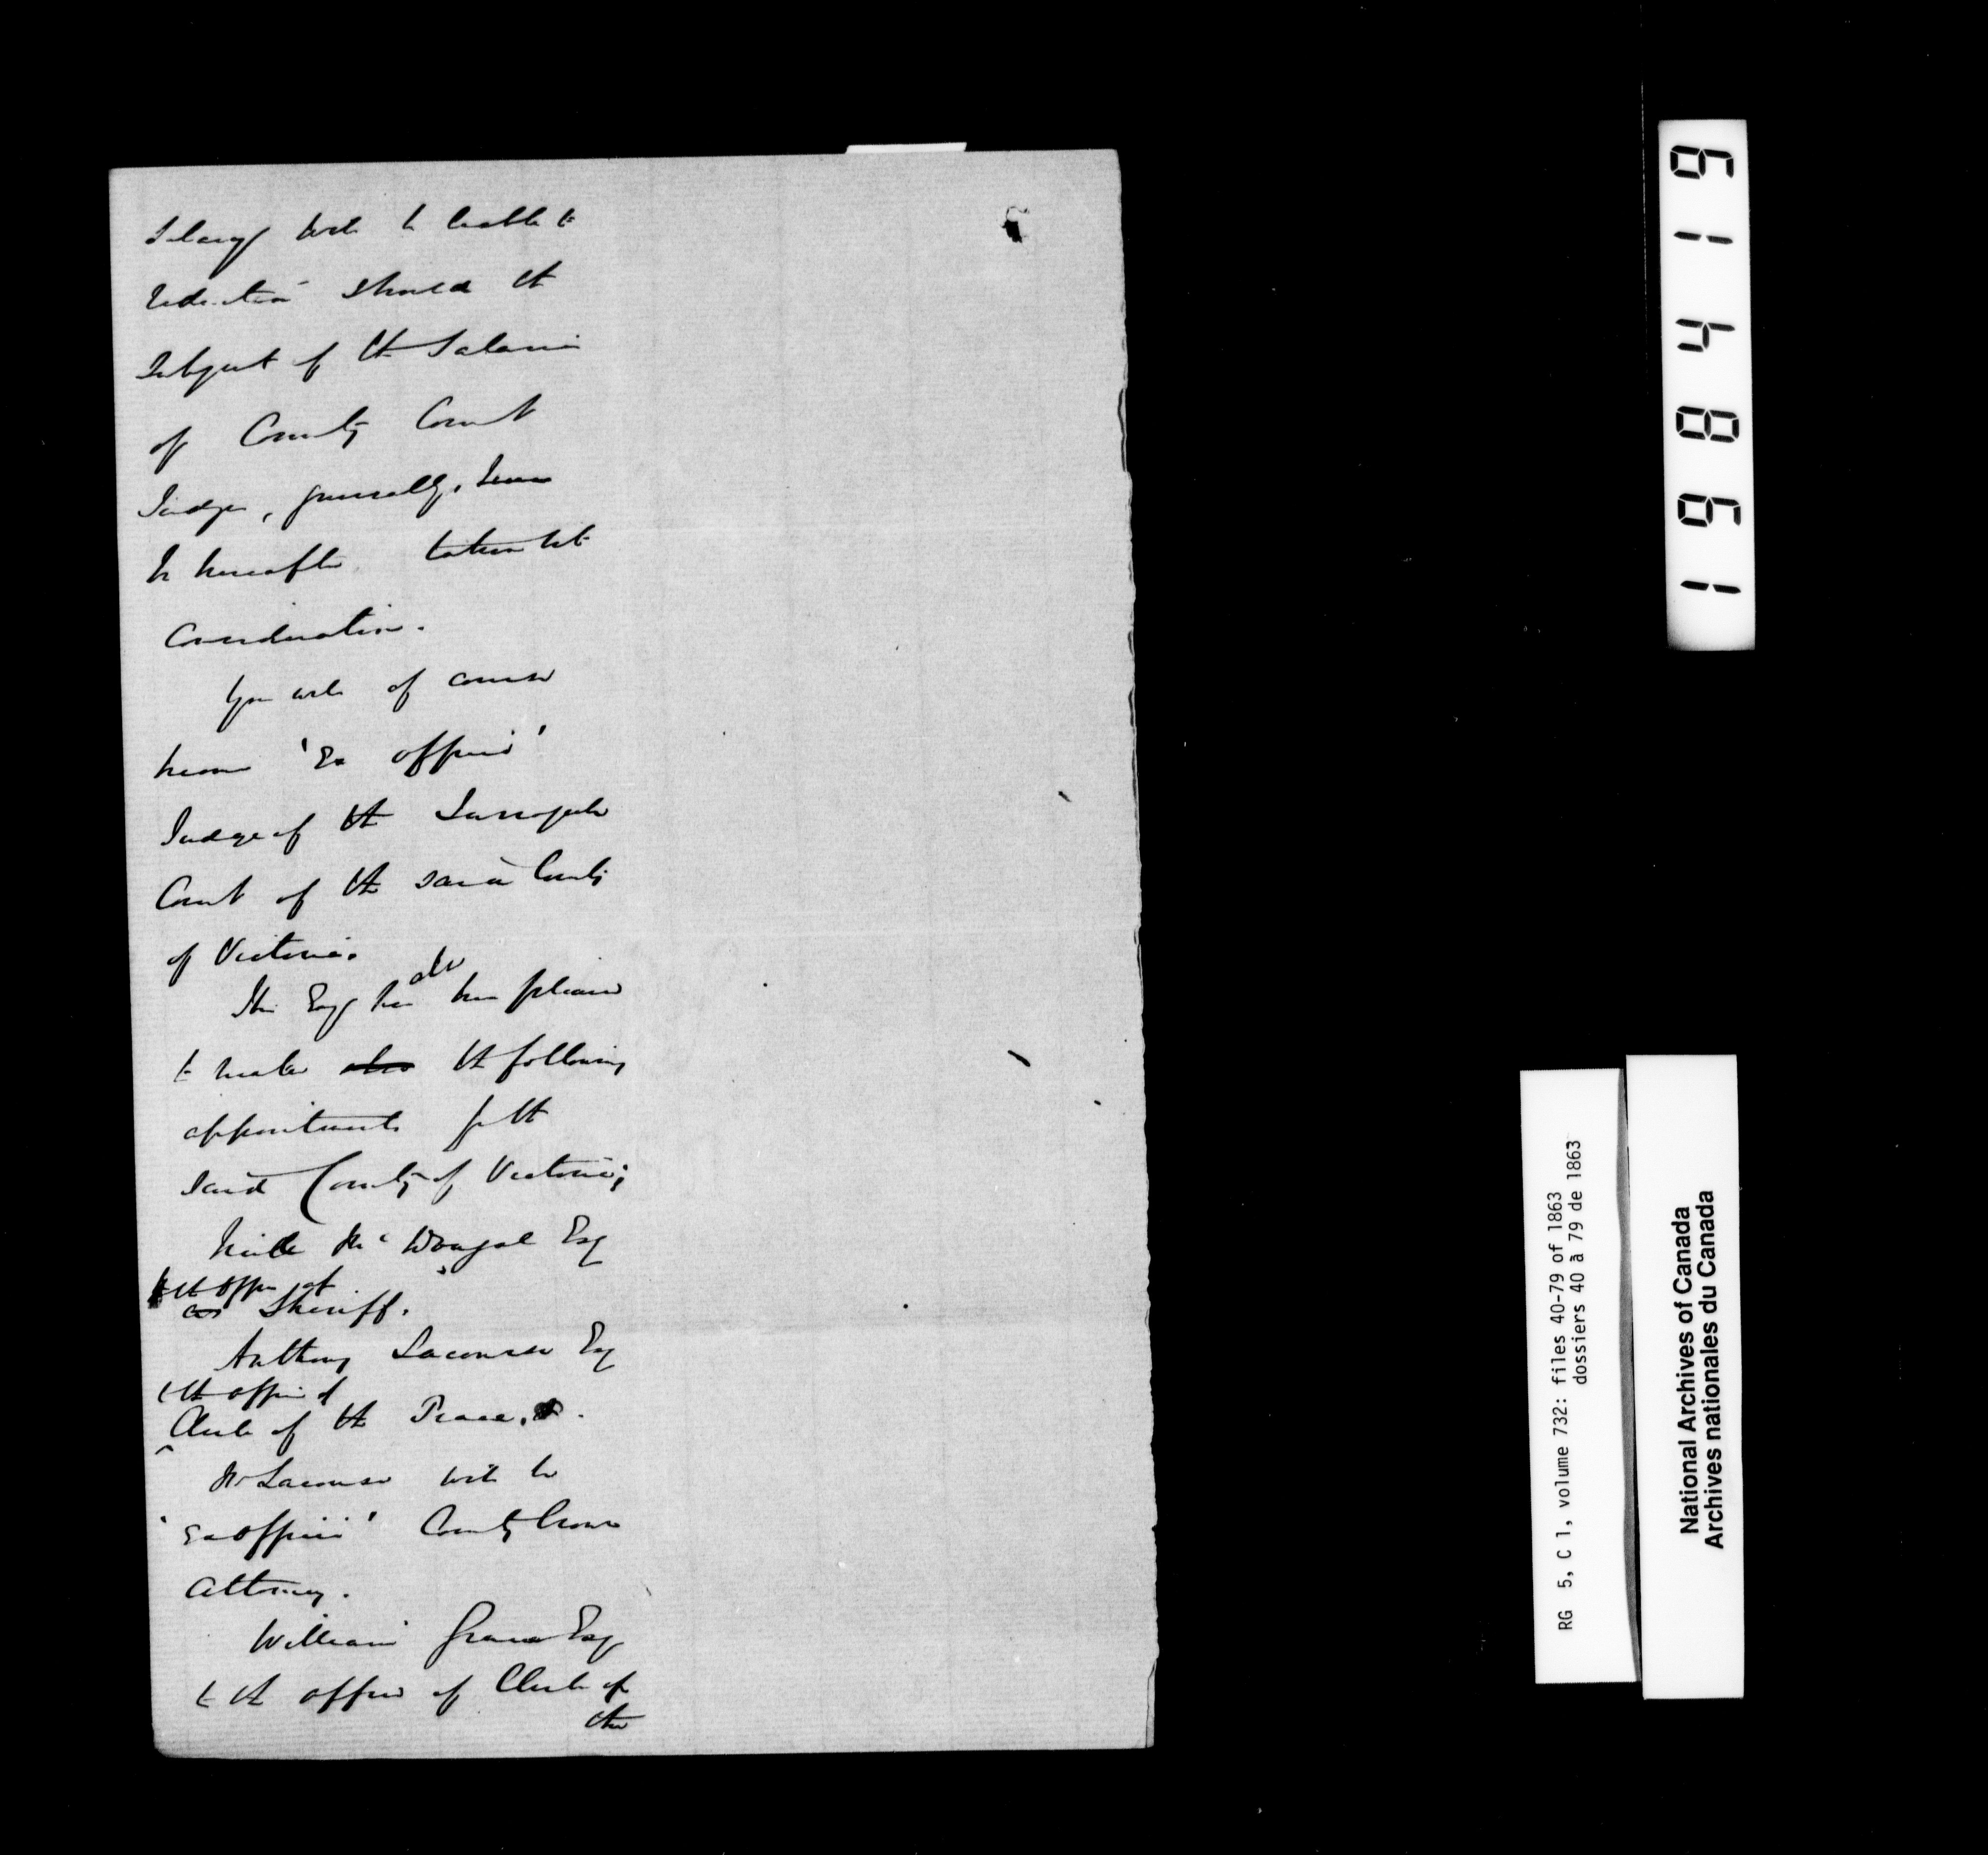 Salary will be liable to
reduction should the
Subject of the Salaries
of County Court
Judges, generally,
be hereafter taken into
Consideration.
You will of course
become 'Ex officio'
Judge of the Surrogate
Court of the said County
of Victoria.
His Excy has also been pleased
to make also the following
appointments for the
said County of Victoria;
Neile McDougal Esq
to the office of
as Sheriff.
Anthony Lacourse Esq
to the office of
Clerk of the Peace.
Mr Lacourse will be
'Ex officio' County Crown
Attorney.
William Grace Esq
to the office of Clerk of
the
196419
RG 5, C 1, volume 732: files 40-79 of 1863
dossiers 40 à 79 de 1863
National Archives of Canada
Archives nationales du Canada